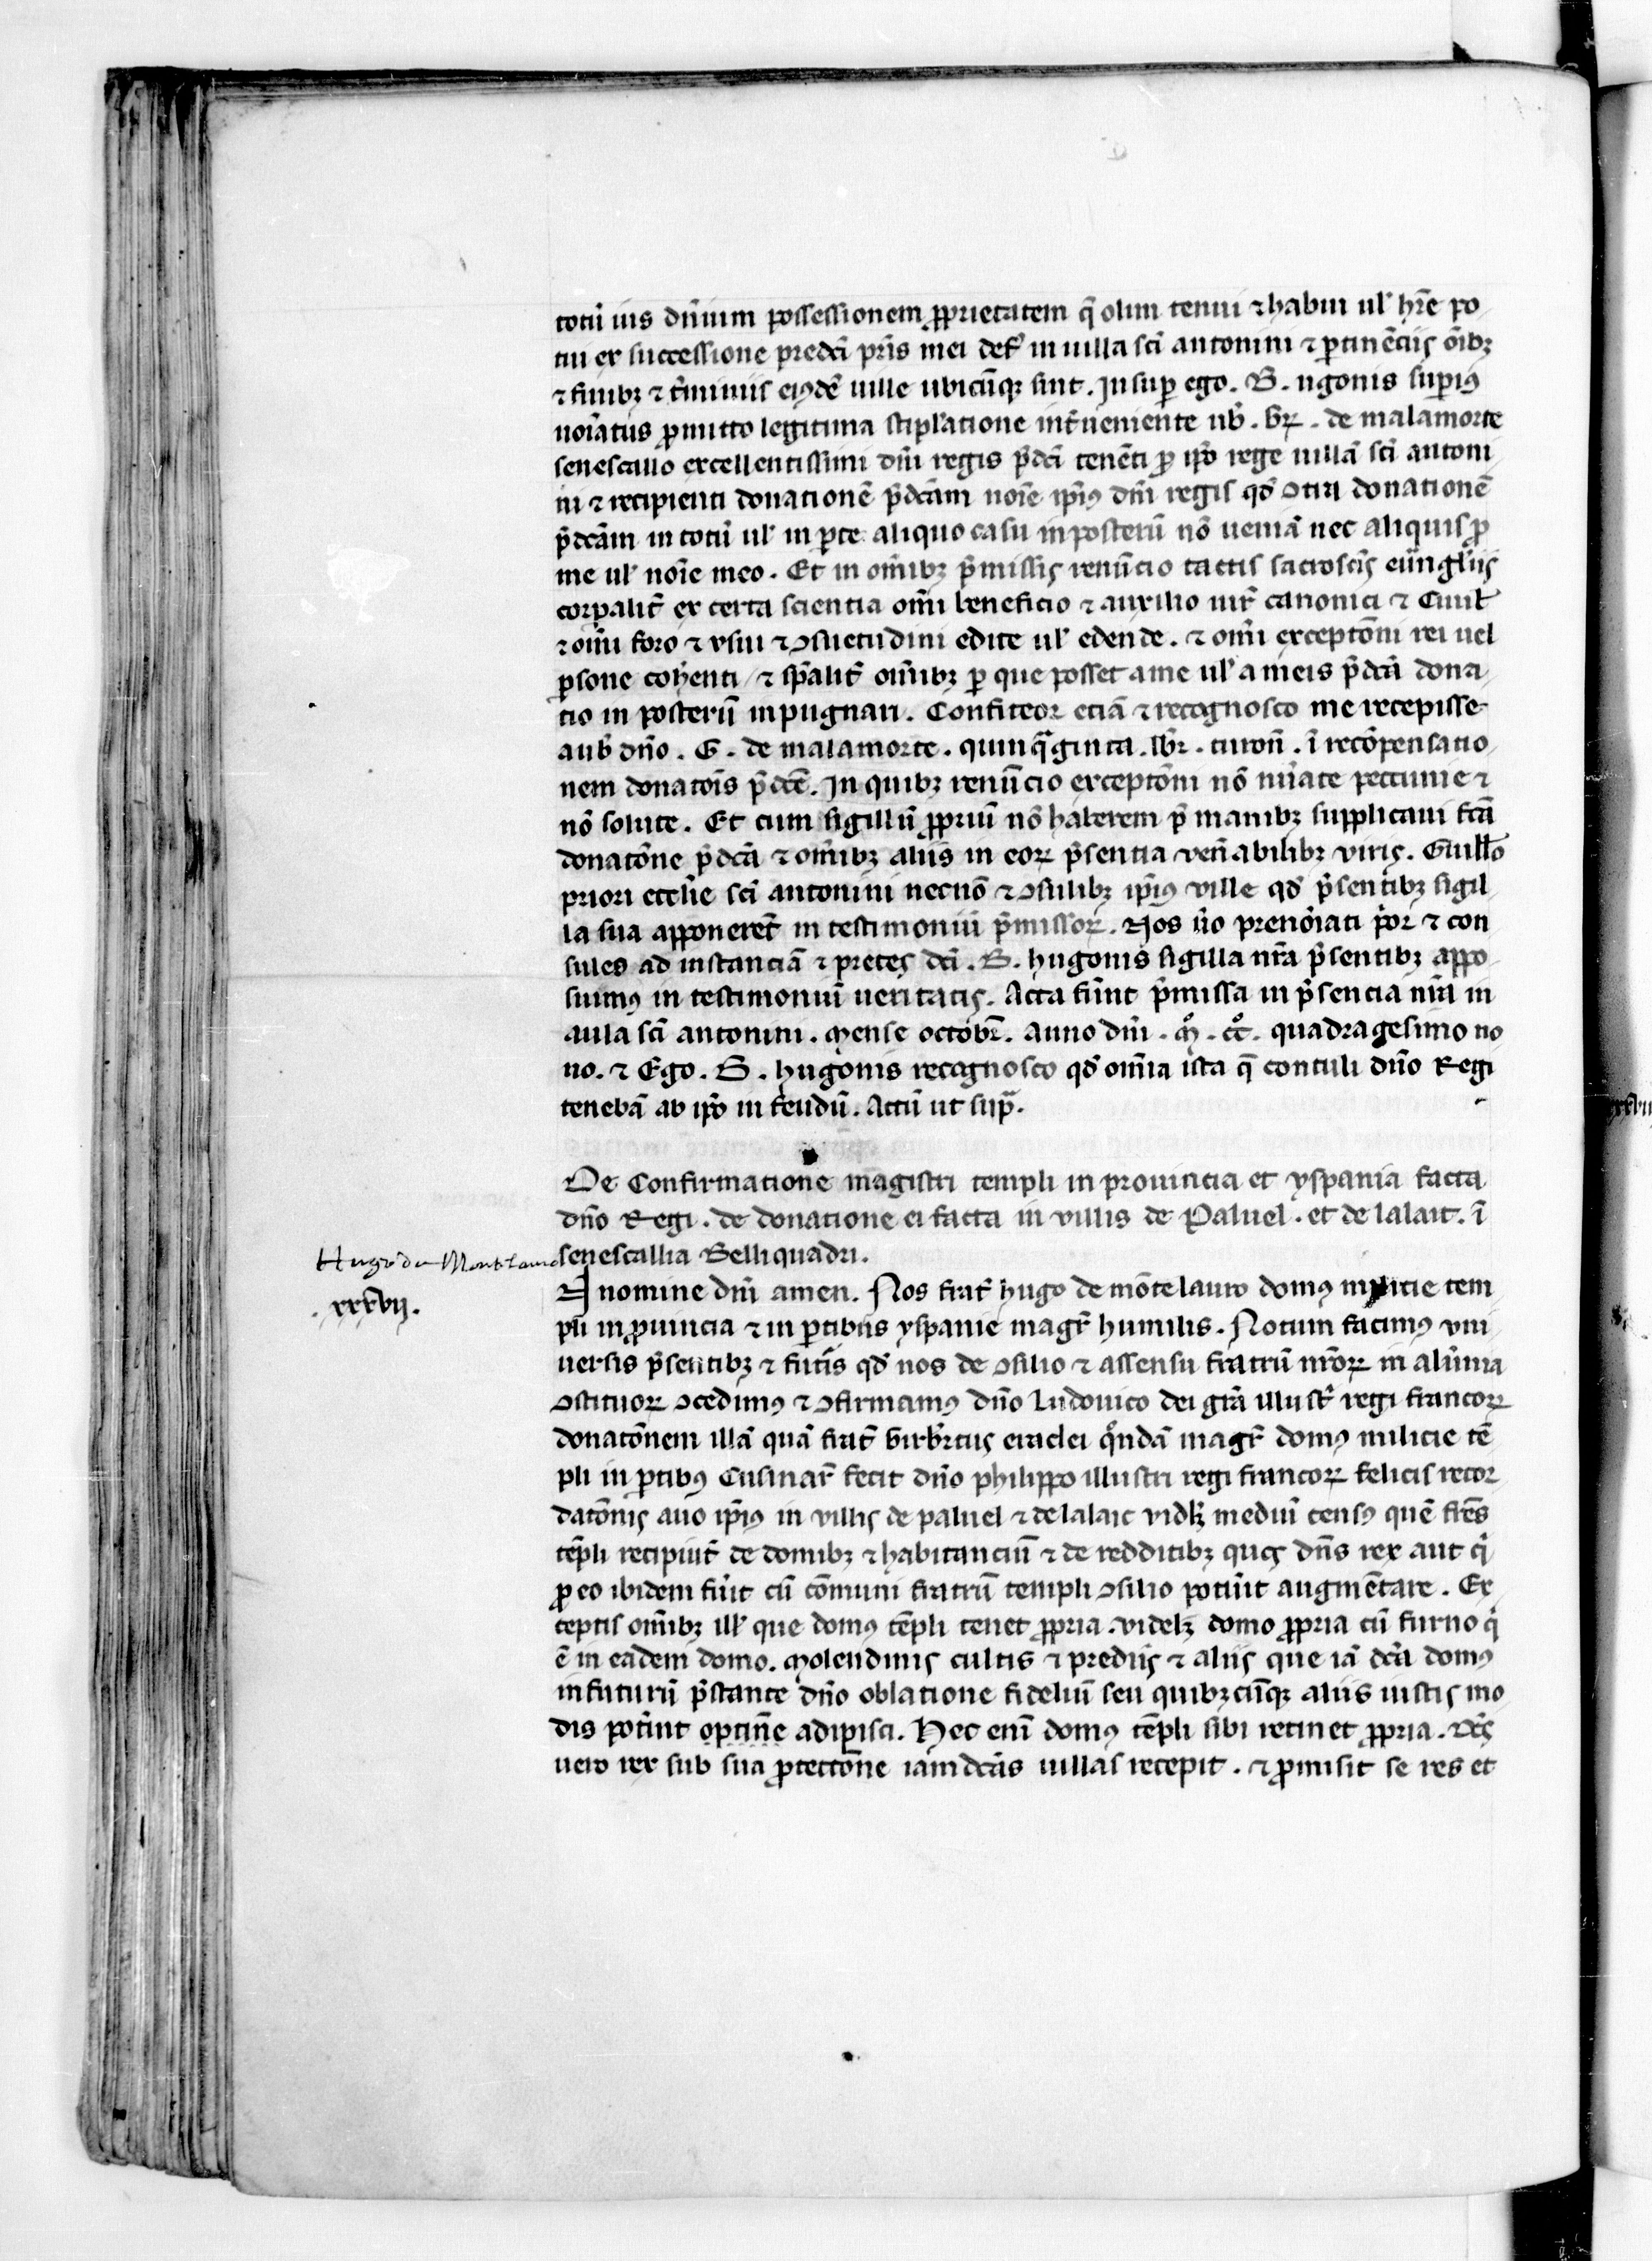 totū ius dn̄ium possessionem ꝓprietatem q̄ olim tenui ⁊ habui ul' hr̄e po
tui ex successione predc̄i pr̄is mei def' in uilla sc̄i antonini ⁊ ꝑtinēciis oībꝫ
⁊ finibꝫ ⁊ t̄miniis eiꝯdē uille ubicūqꝫ sint. Insuꝑ ego. B. ugonis suꝑiꝯ
noīatus ꝓmitto legitima stipl̄atione int̄ueniente ub̄. br̄. de malamorte
senescallo excellentissimi dn̄i regis p̄dc̄i tenēti ꝓ ip̄o rege uillā sc̄i antoni
ni ⁊ recipienti donationē p̄dcām noīe ip̄iꝯ dn̄i regis qd̄ ꝯtra donationē
p̄dcām in totū ul' in ꝑte aliquo casu in posterū nō ueniā nec aliquis ꝓ
me ul' noīe meo. Et in om̄ibꝫ p̄missis renūcio tactis sacrosc̄is eūngl̄iis
corꝑalit̄ ex certa scientia om̄i beneficio ⁊ auxilio iur̄ canonici ⁊ Ciuil'
⁊ om̄i foro ⁊ vsui ⁊ ꝯsuetudini edite ul' edende. ⁊ om̄i exceptōni rei uel
ꝑsone coh̄enti / ⁊ sp̄alit̄ om̄ibꝫ ꝑ que posset a me ul' a meis p̄dcā dona
tio in posterū inpugnari. Confiteor etiā ⁊ recognosco me recepisse
a ub̄ dn̄o. G. de malamorte. quinq̄ginta. lbr̄. turon̄. ī recōpensatio
nem donatōis p̄dcē. In quibꝫ renūcio exceptōni nō nūate peccunie ⁊
nō solute. Et cum sigillū ꝓpriū nō haberem p̄ manibꝫ supplicaui fcā
donatōne p̄dcā ⁊ om̄ibꝫ aliis in eoꝝ p̄sentia ven̄abilibꝫ viris. Guill̄o
priori eccl̄ie sc̄i antonini necnō ⁊ ꝯsulibꝫ ip̄iꝯ ville qd̄ p̄sentibꝫ sigil
la sua apponeret̄ in testimoniū p̄missoꝝ. Nos ūo prenōiati p̄or ⁊ con
sules ad instanciā ⁊ preces dc̄i. B. hugonis sigilla nr̄a p̄sentibꝫ appo
suimꝯ in testimoniū ueritatis. Acta fūnt p̄missa in p̄sencia nr̄a in
aula sc̄i antonini. Mense octobr̄. Anno dn̄i. M̊. cc̊. quadragesimo no
no. ⁊ Ego. B. hugonis recognosco qd̄ om̄ia ista q̄ contuli dn̄o Regi
tenebā ab ip̄o in feudū. Actū ut supᵃ.
De Confirmatione magistri templi in prouincia et yspania facta
dn̄o Regi. de donatione ei facta in villis de Paluel. et de lalait. ī
senescallia Belliquadri.
Hugo de Montlauro
.xxxvij.
In nomine dn̄i amen. Nos frat̄ hugo de mōtelauro domꝯ milicie tem
pli in ꝓuincia ⁊ in ꝑtibus yspanie magr̄ humilis. Notum facimꝯ vni
uersis p̄sentibꝫ ⁊ futīs qd̄ nos de ꝯsilio ⁊ assensu fratrū nr̄oꝝ in alūnia
ꝯstitutoꝝ ꝯcedimꝯ ⁊ ꝯfirmamꝯ dn̄o Ludouico dei grā illustr̄ regi francoꝝ
donatōnem illā quā frat̄ Girb̄tus eraclei q̊ndā magr̄ domꝯ milicie tē
pli in ꝑtibꝯ Cisinar̄ fecit dn̄o philippo illustri regi francoꝝ felicis recor
datōnis auo ip̄iꝯ in villis de paluel ⁊ de lalaic vidlꝫ mediū censꝯ quē frēs
tēpli recipiūt de domibꝫ ⁊ habitanciū ⁊ de redditibꝫ quos dn̄s rex aut q̄
ꝓ eo ibidem fūit cū cōmuni fratrū templi ꝯsilio pot̄unt augmētare. Ex
ceptis om̄ibꝫ ill' que domꝯ tēpli tenet ꝓpria. videlꝫ domo ꝓpria cū furno q̄
ē in eadem domo. Molendinis cultis ⁊ prediis ⁊ aliis que iā dcā domꝯ
in futurū p̄stante dn̄o oblatione fideliū seu quibꝫcūqꝫ aliis iustis mo
dis pot̄int optin̄e adipisci. Hec enī domꝯ tēpli sibi retinet ꝓpria. dc̄s
uero rex sub sua ꝓtectōne iamdcās uillas recepit. ⁊ ꝓmisit se res et